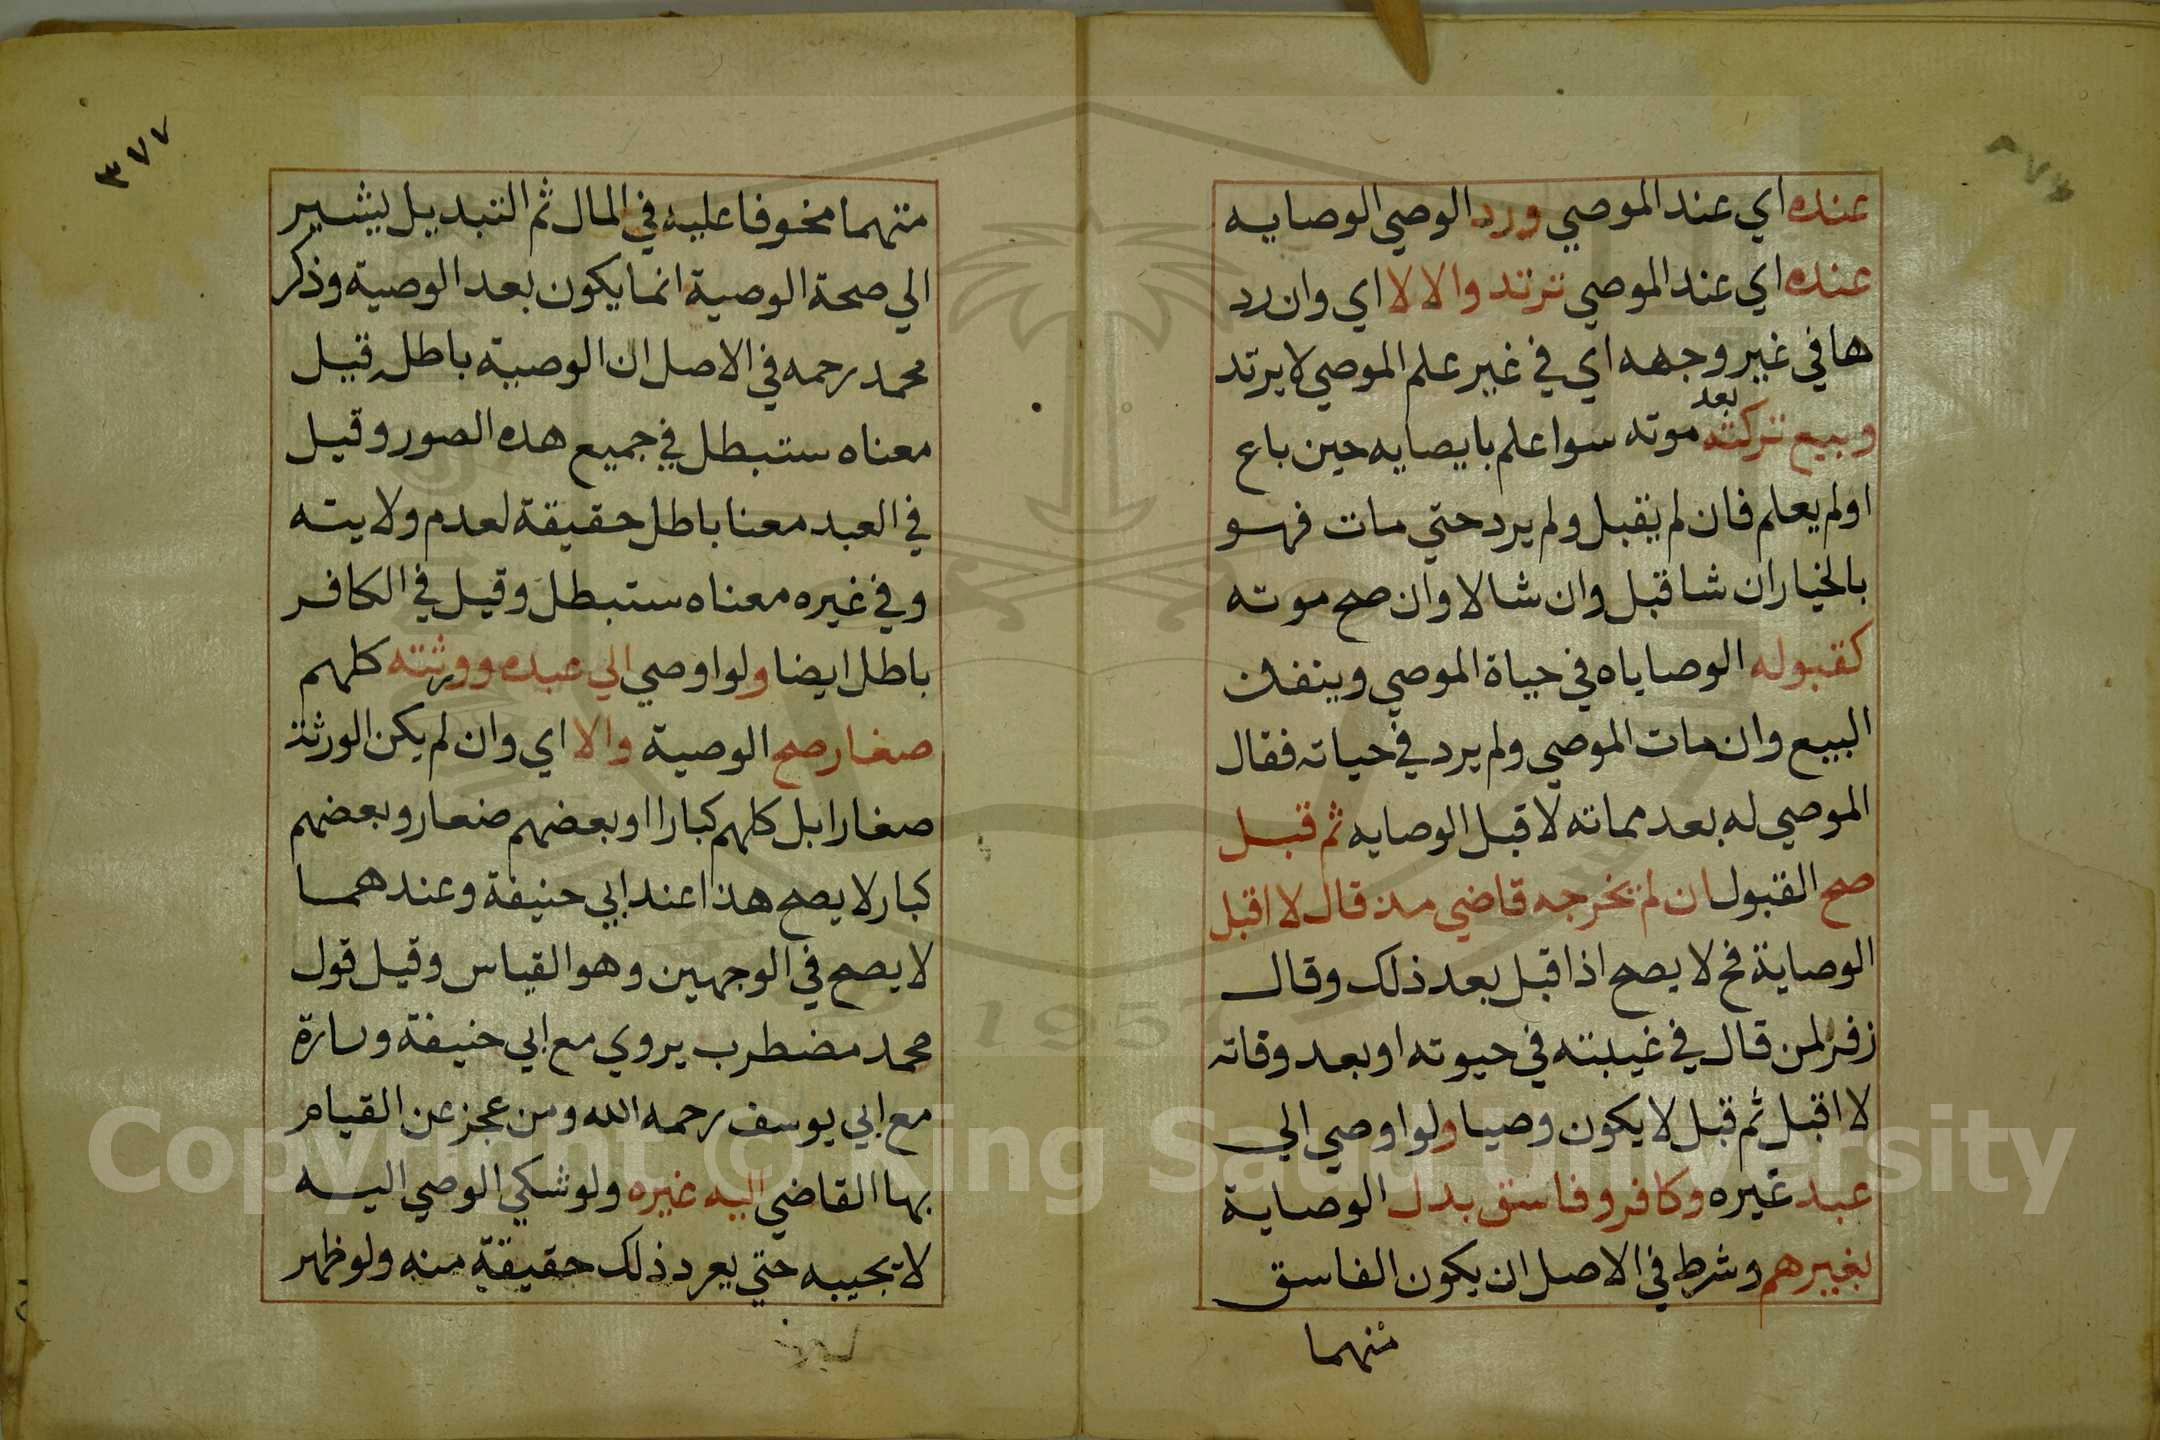 عنده اي عند الموصي ورد الوصي الوصايه
عنده اي عند الموصي ترتد والا لا اي وان رد
ها في غير وجهه اي في غير علم الموصي لا يرتد
وبيع تركته بعد موته سوا علم بايصايه حين باع
اولم يعلم فان لم يقبل ولم يرد حتي مات فهو
بالخيار ان شا قبل وان شا لا وان صح موته
كقبوله الوصاياه في حياة الموصي وينفذ
البيع وان مات الموصي ولم يرد في حياته فقال
الموصي له بعد مماته لا اقبل الوصايه ثم قبل
صح القبول ان لم يخرجه قاضي مذ قال لا اقبل
الوصاية فح لا يصح اذا قبل بعد ذلك وقال
زفر لمن قال في غيبته في حيوته او بعد وقاته
لا اقبل ثم قبل لا يكون وصيا ولو اوصي الي
عبد غيره وكافر وفاسق بدل الوصاية
بغيرهم وشرط في الاصل ان يكون الفاسق
منهما
٣٧٧
منهما مخوفا عليه في المال ثم التبديل يشير
الي صحة الوصية انما يكون بعد الوصية وذكر
محمد رحمه في الاصل ان الوصية باطل قيل
معناه ستبطل في جميع هذه الصور وقيل
في العبد معنا باطل حقيقة لعدم ولايته
وفي غيره معناه ستبطل وقيل في الكافر
باطل ايضا ولو اوصي الي عبده وورثته كلهم
صغار صح الوصية والا اي وان لم يكن الورثة
صغارا بل كلهم كبارا او بعضهم صغار وبعضهم
كبار لا يصح هذا عند ابي حنيفة وعندهما
لا يصح في الوجهين وهو القياس وقيل قول
محمد مضطرب يروي مع ابي حنيفة وتارة
مع ابي يوسف رحمه الله ومن عجز عن القيام
بها القاضي اليه غيره ولو شكي الوصي اليه
لا يجيبه حتي يعرد ذلك حقيقة منه ولو ظهر
Copyright © King Saud University
1957